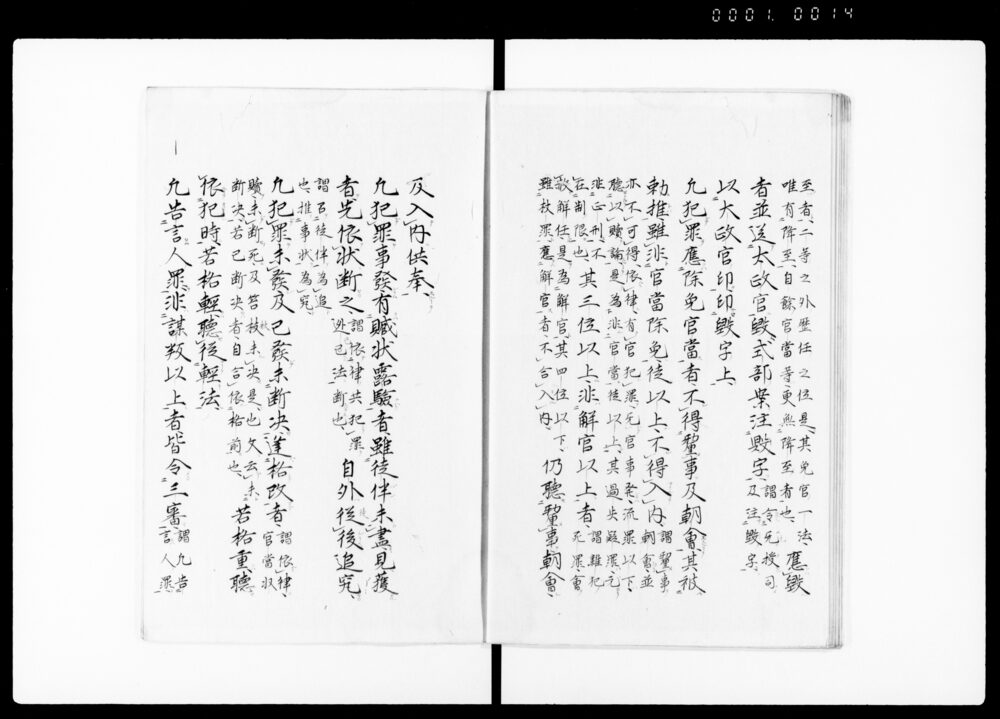 0001.0014
至者、二等之外歴任之位是、其免官一法、
唯有降至、自餘官當等、更無降至者也、應毀
者並送太政官毀、式部案注毀字、謂、令元授司
及注毀字、
以太政官印印毀字上、
凡犯罪應除免官當者、不得釐事及朝會、其被
勅推雖非官當除免、徒以上不得入内、謂、釐事
朝會並
亦不可得、依律、有官犯罪、无官事発、流罪以下、
聴以贖論、是為非官當、徒以上、其過失疑罪、
非正刑、不
在制限也、其三位以上非解官以上者、謂、雖犯
死罪、會
赦解任、是為解官、其四位以下、
雖杖罪、應解官者、不合入内、仍聽釐事朝會、
及入内供奉、
凡犯罪事發有贓状露驗者、雖徒伴未盡見獲
者先依状断之、謂、依律、共犯罪
逃亡法断也、自外從後追究、
謂、百徒伴為追
也、推事状為究、
凡犯罪未發及已發未断決、逢格改者、謂、依律、
官當収
贖、未断死、及笞杖未決是也、又云、未
断決、若已断決者、自合依格前也、若格重聽
依犯時、若格輕聽從輕法、
凡告言人罪、非謀叛以上者、皆令三審、謂、凡告
言人罪